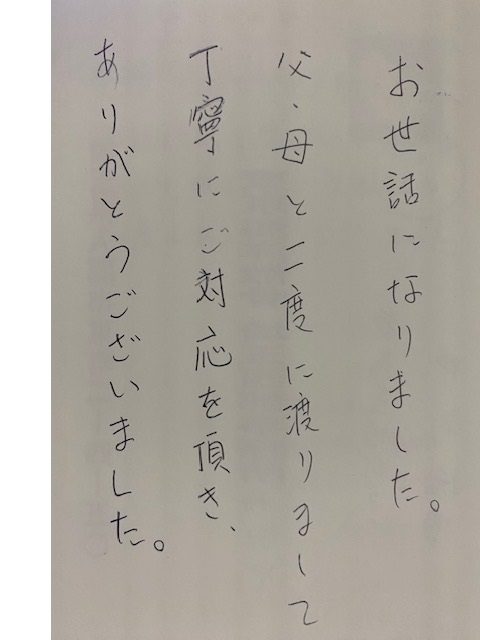 お世話になりました。
父・母と二度に渡りまして
丁寧にご対応を頂き、
ありがとうございました。